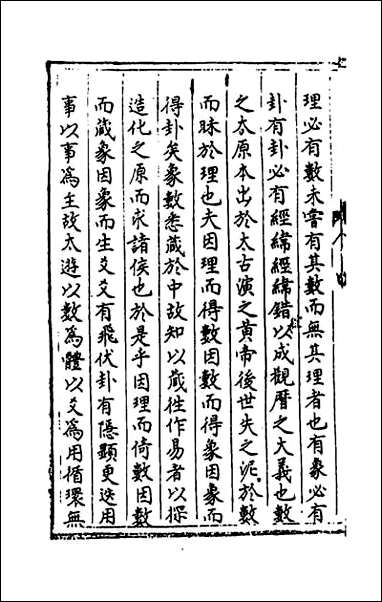 理必有數未嘗有其數而無其理者也有象必有
卦有卦必有經緯經緯錯以成觀曆之大義也數
之太原本出於太古演之黄帝後世失之泥於數
而昧於理也夫因理而得數因數而得象因象而
得卦矣象數悉藏於中故知以藏徃作易者以探
造化之原而求諸侯也於是乎因理而倚數因數
而蔵象因象而生爻爻有飛伏卦有隱顯更迭用
事以事為主故太遊以數為體以爻為用循環無